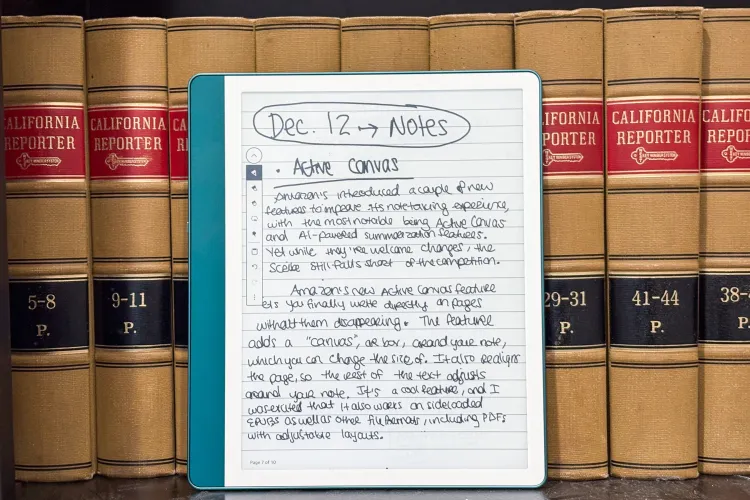 CALIFORNIA
REPORTER
KEY NUMBER SYSTEM
5-8
P.
CALIFORNIA
REPORTER
KEY NUMBER SYSTEM
9-11
P.
CA
R
Dec. 12 → Notes
• Active Canvas
Amazon's introduced a couple of new
features to improve its notetaking experience,
with the most notable being Active Canvas
and AI-powered summarization features.
Yet while they're welcome changes, the
Scribe still falls short of the competition.
Amazon's new Active Canvas feature
lets you finally write directly on pages
without them disappearing. The feature
adds a "canvas", or box, around your note,
which you can change the size of. It also realigns
the page, so the rest of the text adjusts
around your note. It's a cool feature, and I
was excited that it also works on sideloaded
EPUBs as well as other file formats, including PDFs
with adjustable layouts.
Page 7 of 10
IFORNIA
ORTER
29-31
P.
CALIFORNIA
REPORTER
KEY NUMBER SYSTEM
41-44
P.
CALIFO
REPOR
38-4
P.